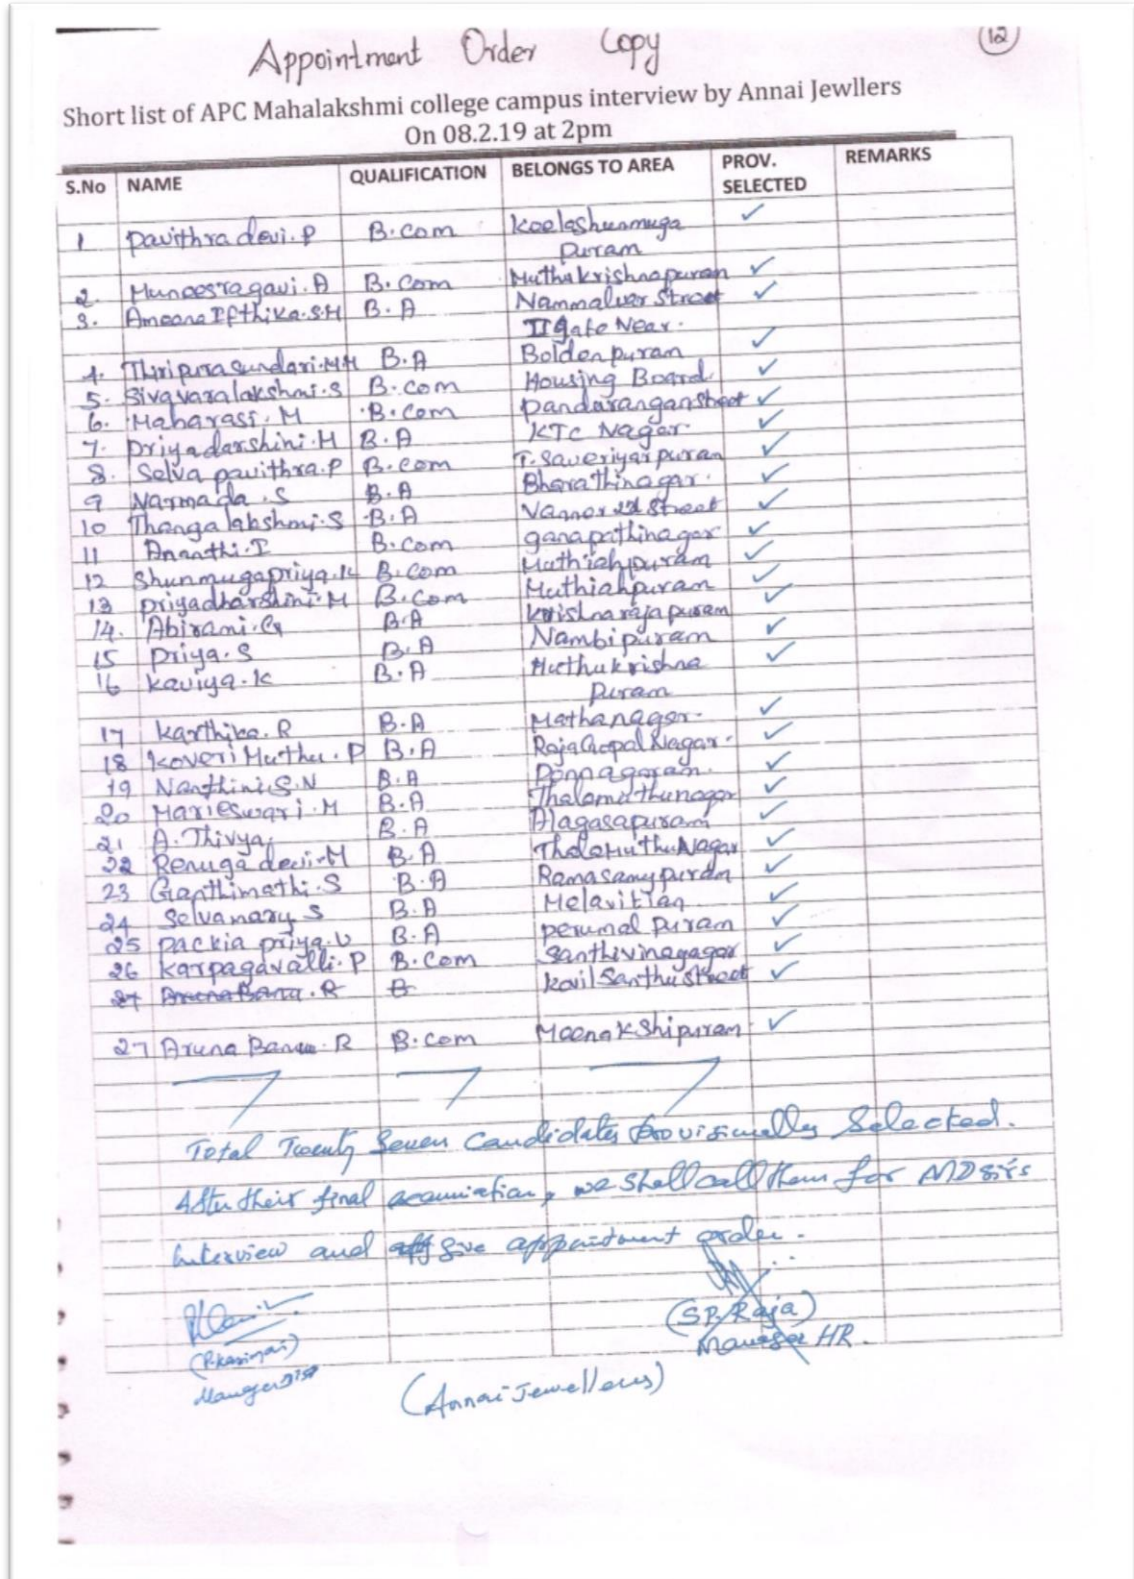 12
Appointment Order Copy
Short list of APC Mahalakshmi college campus interview by Annai Jewllers
On 08.2.19 at 2pm
S.No NAME QUALIFICATION BELONGS TO AREA PROV. SELECTED REMARKS
1 Pavithra devi.P B.com Keelashunmuga ✓
puram
2. Muneesragavi.A B.Com Muthukrishnapuram ✓
3. Ameena Ifthika.S.H B.A Nammalvar Street ✓
II gate Near.
4. Thiripurasundari.M B.A Boldenpuram ✓
5. Sivavaralakshmi.S B.com Housing Board ✓
6. Maharasi.M B.com Pandarangan Street ✓
7. Priyadarshini.M B.A KTC Nagar. ✓
8. Selva pavithra.P B.com T.Saveriyarpuram ✓
9 Narmada.S B.A Bharathinagar. ✓
10 Thangalakshmi.S B.A Vannar 2nd Street ✓
11 Ananthi.I B.com ganapathinagar ✓
12 Shunmugapriya.K B.com Muthiahpuram ✓
13 Priyadharshini.M B.Com Muthiahpuram ✓
14. Abirami.G B.A Krishnarajapuram ✓
15 Priya.S B.A Nambipuram ✓
16 Kaviya.K B.A Muthukrishna ✓
Puram
17 Karthika.R B.A Mathanagar. ✓
18 Koveri Muthu.P B.A RajaGopal Nagar. ✓
19 Nanthini.S.N B.A Ponnagaram. ✓
20 Marieswari.M B.A Thalamuthunagar ✓
21 A.Thivya B.A Alagasapuram ✓
22 Renuga devi.M B.A Thalamuthu Nagar ✓
23 Ganthimathi.S B.A Ramasamypuram ✓
24 Selvamary S B.A Melavittan ✓
25 Packia priya.U B.A perumal Puram ✓
26 Karpagavalli.P B.Com Santhivinayagar ✓
27 Aruna Banu.R B Kovil Santhu Street ✓
27 Aruna Banu.R B.com Meenakshipuram ✓
Total Twenty Seven Candidates Provisionally Selected.
After their final , we shall call them for MD sir's
Interview and give appointment order.
(S.P. Raja)
(P.Kasimari) Manager HR.
Manager
(Annai Jewellers)